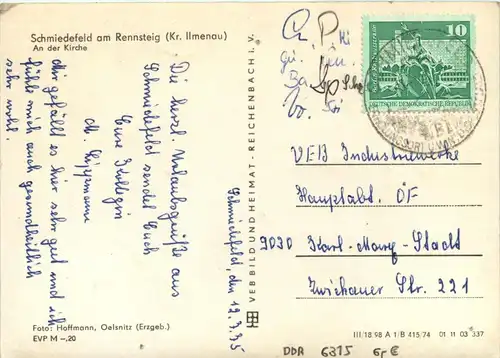 Schmiedefeld am Rennsteig (Kr. Ilmenau)
An der Kirche
Schmiedefeld, den 12.3.75
Die herzl. Urlaubsgrüße aus
Schmiedefeld sendet Euch
Eure Kollegin
M. Lippmann
Mir gefällt es hier sehr gut und ich
fühle mich auch gesundheitlich
sehr wohl.
Foto: Hoffmann, Oelsnitz (Erzgeb.)
EVP M –,20
VEB BILD UND HEIMAT · REICHENBACH i. V.
10
DEUTSCHE DEMOKRATISCHE REPUBLIK
VEB Industriewerke
Hauptabt. ÖF
9030 Karl-Marx-Stadt
Zwickauer Str. 221
III/18/98 A 1/B 415/74 01 11 03 337
DDR 6315 Gr €